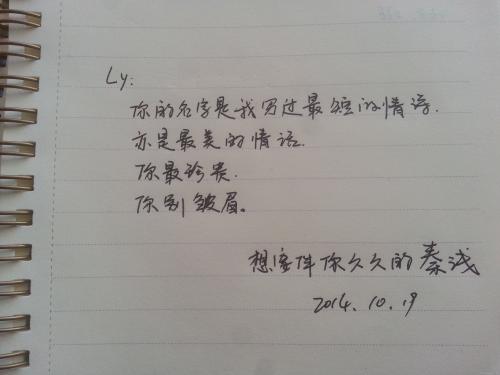 Ly:
你的名字是我写过最短的情诗.
亦是最美的情话.
你最珍贵.
你别皱眉。
想陪伴你久久的秦浅
2014.10.19